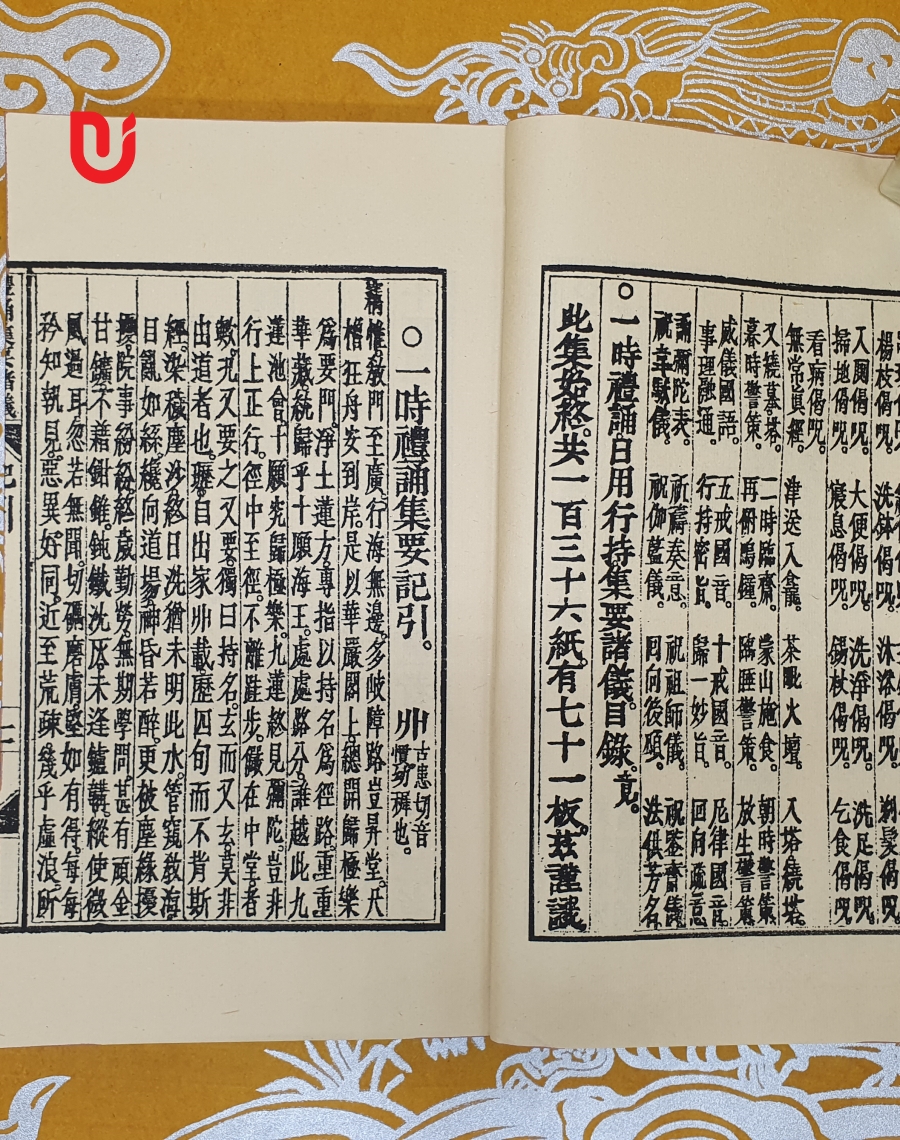 楊枝偈咒。 洗鉢偈咒。 沐浴偈咒。 剃髮偈咒。
入圊偈咒。 大便偈咒。 洗淨偈咒。 洗足偈咒。
掃地偈咒。 寢息偈咒。 錫杖偈咒。 乞食偈咒。
看病偈咒。
無常眞經。 津送入龕。 茶毗火壇。 入塔繞塔。
又繞墓塔。 二時臨齋。 蒙山施食。 朝時警策。
暮時警策。 再俻鳴鐘。 臨睡警策。 放生警策。
威儀國語。 五戒國音。 十戒國音。 尼律國音。
事理融通。 行持密旨。 歸一妙旨。 回向䟽意。
誦彌陀表。 祈禱奏意。 祝祖師儀。 祝監齋儀
祝韋馱儀。 祝伽藍儀。 回向後願。 法供芳名
○一時禮誦日用行持集要諸儀。目錄。竟。
此集始終。共一百三十六紙。有七十一板。玆謹識
○一時禮誦集要記引。 丱古患切音慣。幼稺也。
惟教門至廣。行海無邊。多岐障路。豈昇堂。尺
檣狂舟。安到岸。是以華嚴閣上。總開歸極樂
爲要門。淨土蓮方。專指以持名爲徑路。重重
華藏。統歸乎十願海王。處處路分。誰越此九
蓮池會。十願究歸極樂。九蓮終見彌陀。豈非
行上正行。徑中至徑。不離跬步。儼在中堂者
歟。況又要之又要。獨曰持名。玄而又玄。莫非
出道者也。瓑自出家丱載。歷四旬而不肯斯
經。染穢塵沙。終日洗猶未明此水。管窺教海
目亂如絲。纔向道場。神昏若醉。更被塵緣擾
擾。院事紛紛。終歲勤勞。無期學問。甚有頑金
甘鑛。不藉鉗錐。鈍鐵沈灰。未逢鑪韛。縱使微
風過耳。忽若無聞。切礪磨膚。堅如有得。每每
矜知執見。惡異好同。近至荒疎。幾乎虛浪。所